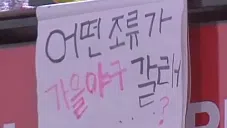 어떤 조류가
가을야구 갈러
...?